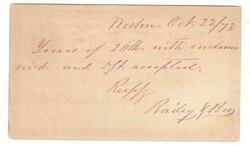 Weston Oct. 22/73
Yours of 20th with enclosure
recd – and dft accepted.
Respy
Bailey &